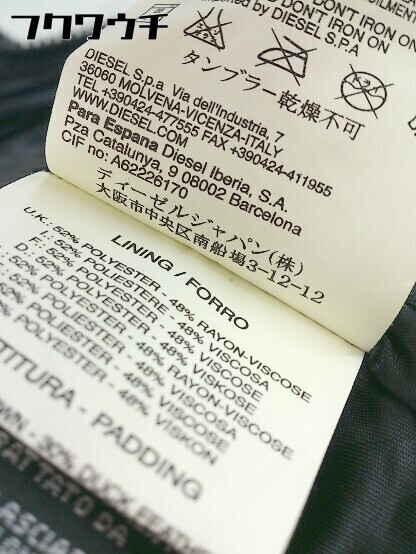 フクワウチ
DON'T IRON ON
BY DIESEL S.P.A
タンブラー乾燥不可
DIESEL S.p.a Via dell'Industria, 7
36060 MOLVENA-VICENZA-ITALY
TEL +390424-477555 FAX +390424-411955
WWW.DIESEL.COM
Para Espana Diesel Iberia, S.A.
Pza Catalunya, 9 08002 Barcelona
CIF no: A62226170
ディーゼルジャパン(株)
大阪市中央区南船場3-12-12
LINING / FORRO
U.K.: 52% POLYESTER - 48% RAYON-VISCOSE
F.: 52% POLYESTERE - 48% VISCOSE
D.: 52% POLYESTER - 48% VISKOSE
52% POLYESTER - 48% VISCOSA
52% POLYESTER - 48% VISCOSE
POLYESTER - 48% VISKON
- PADDING
- 30% DUCK
DA